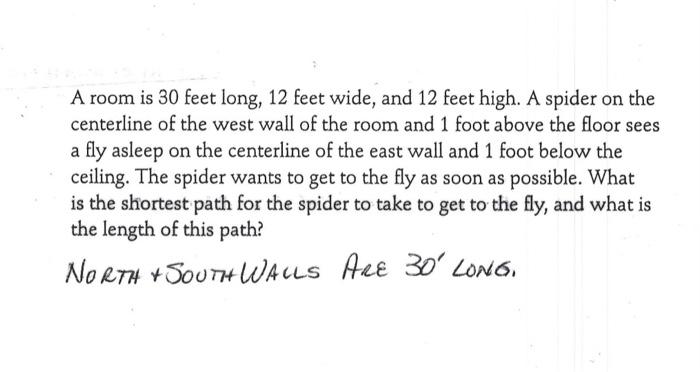 A room is 30 feet long, 12 feet wide, and 12 feet high. A spider on the
centerline of the west wall of the room and 1 foot above the floor sees
a fly asleep on the centerline of the east wall and 1 foot below the
ceiling. The spider wants to get to the fly as soon as possible. What
is the shortest path for the spider to take to get to the fly, and what is
the length of this path?
NORTH + SOUTH WALLS ARE 30' LONG.